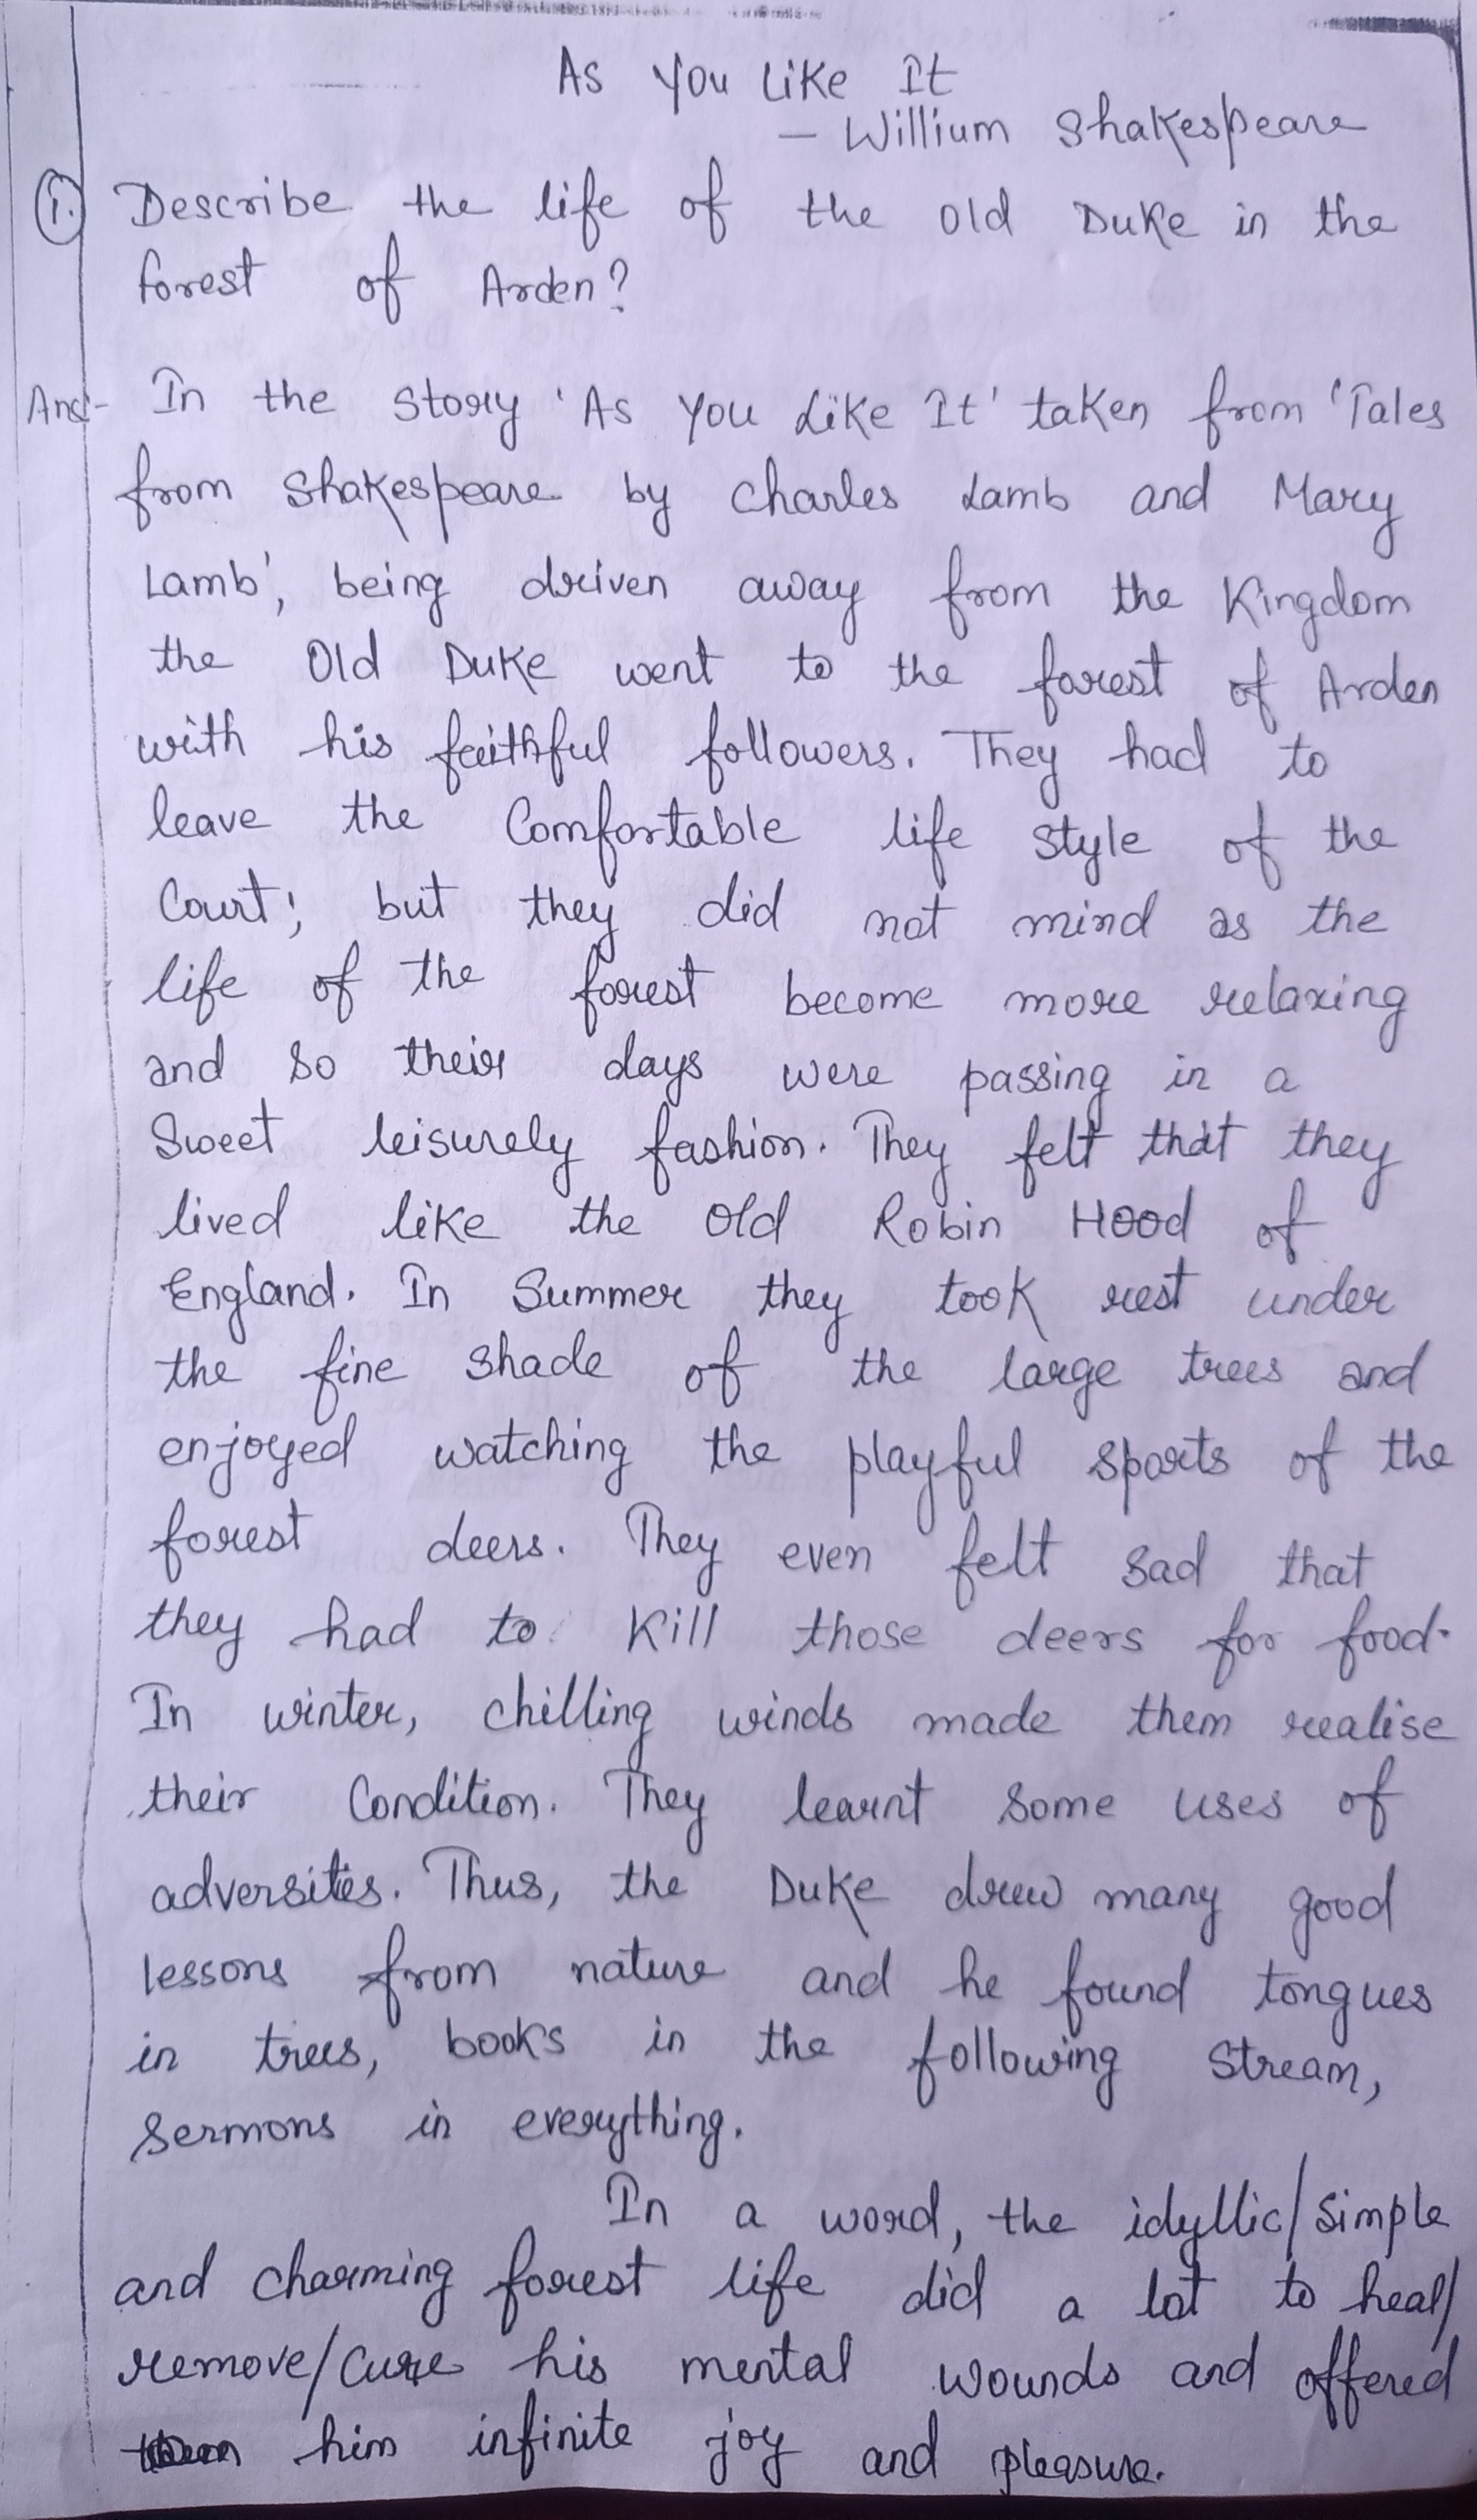 As You Like It
— Willium Shakespeare
1. Describe the life of the old Duke in the
forest of Arden?
Ans- In the story 'As You Like It' taken from 'Tales
from Shakespeare by Charles Lamb and Mary
Lamb', being driven away from the Kingdom
the Old Duke went to the forest of Arden
with his faithful followers. They had to
leave the Comfortable life style of the
Court; but they did not mind as the
life of the forest become more relaxing
and so their days were passing in a
Sweet leisurely fashion. They felt that they
lived like the old Robin Hood of
England. In Summer they took rest under
the fine shade of the large trees and
enjoyed watching the playful sports of the
forest deers. They even felt sad that
they had to Kill those deers for food.
In winter, chilling winds made them realise
their Condition. They learnt some uses of
adversities. Thus, the Duke drew many good
lessons from nature and he found tongues
in trees, books in the following stream,
sermons in everything.
In a word, the idyllic/simple
and charming forest life did a lot to heal/
remove/cure his mental wounds and offered
him infinite joy and pleasure.